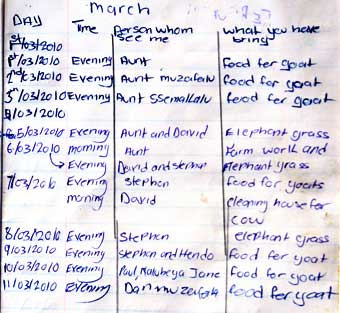 March
DAY Time Person whom what you have
see me bring
1st/03/2010
1st/03/2010 Evening Aunt food for goat
2nd/03/2010 Evening Aunt muzafalu food for goat
3rd/03/2010 Evening Aunt Ssemallalu food for goat
4/03/2010
5/03/2010 Evening Aunt and David Elephant grass
6/03/2010 morning Aunt Farm work and
Evening David and stephen Elephant grass
7/03/2010 Evening Stephen food for goats
morning David cleaning house for
cow
8/03/2010 Evening Stephen elephant grass
9/03/2010 Evening stephen and Hendo food for goat
10/03/2010 Evening Paul, Nalubeya Jane food for goat
11/03/2010 Evening Dan food for goat